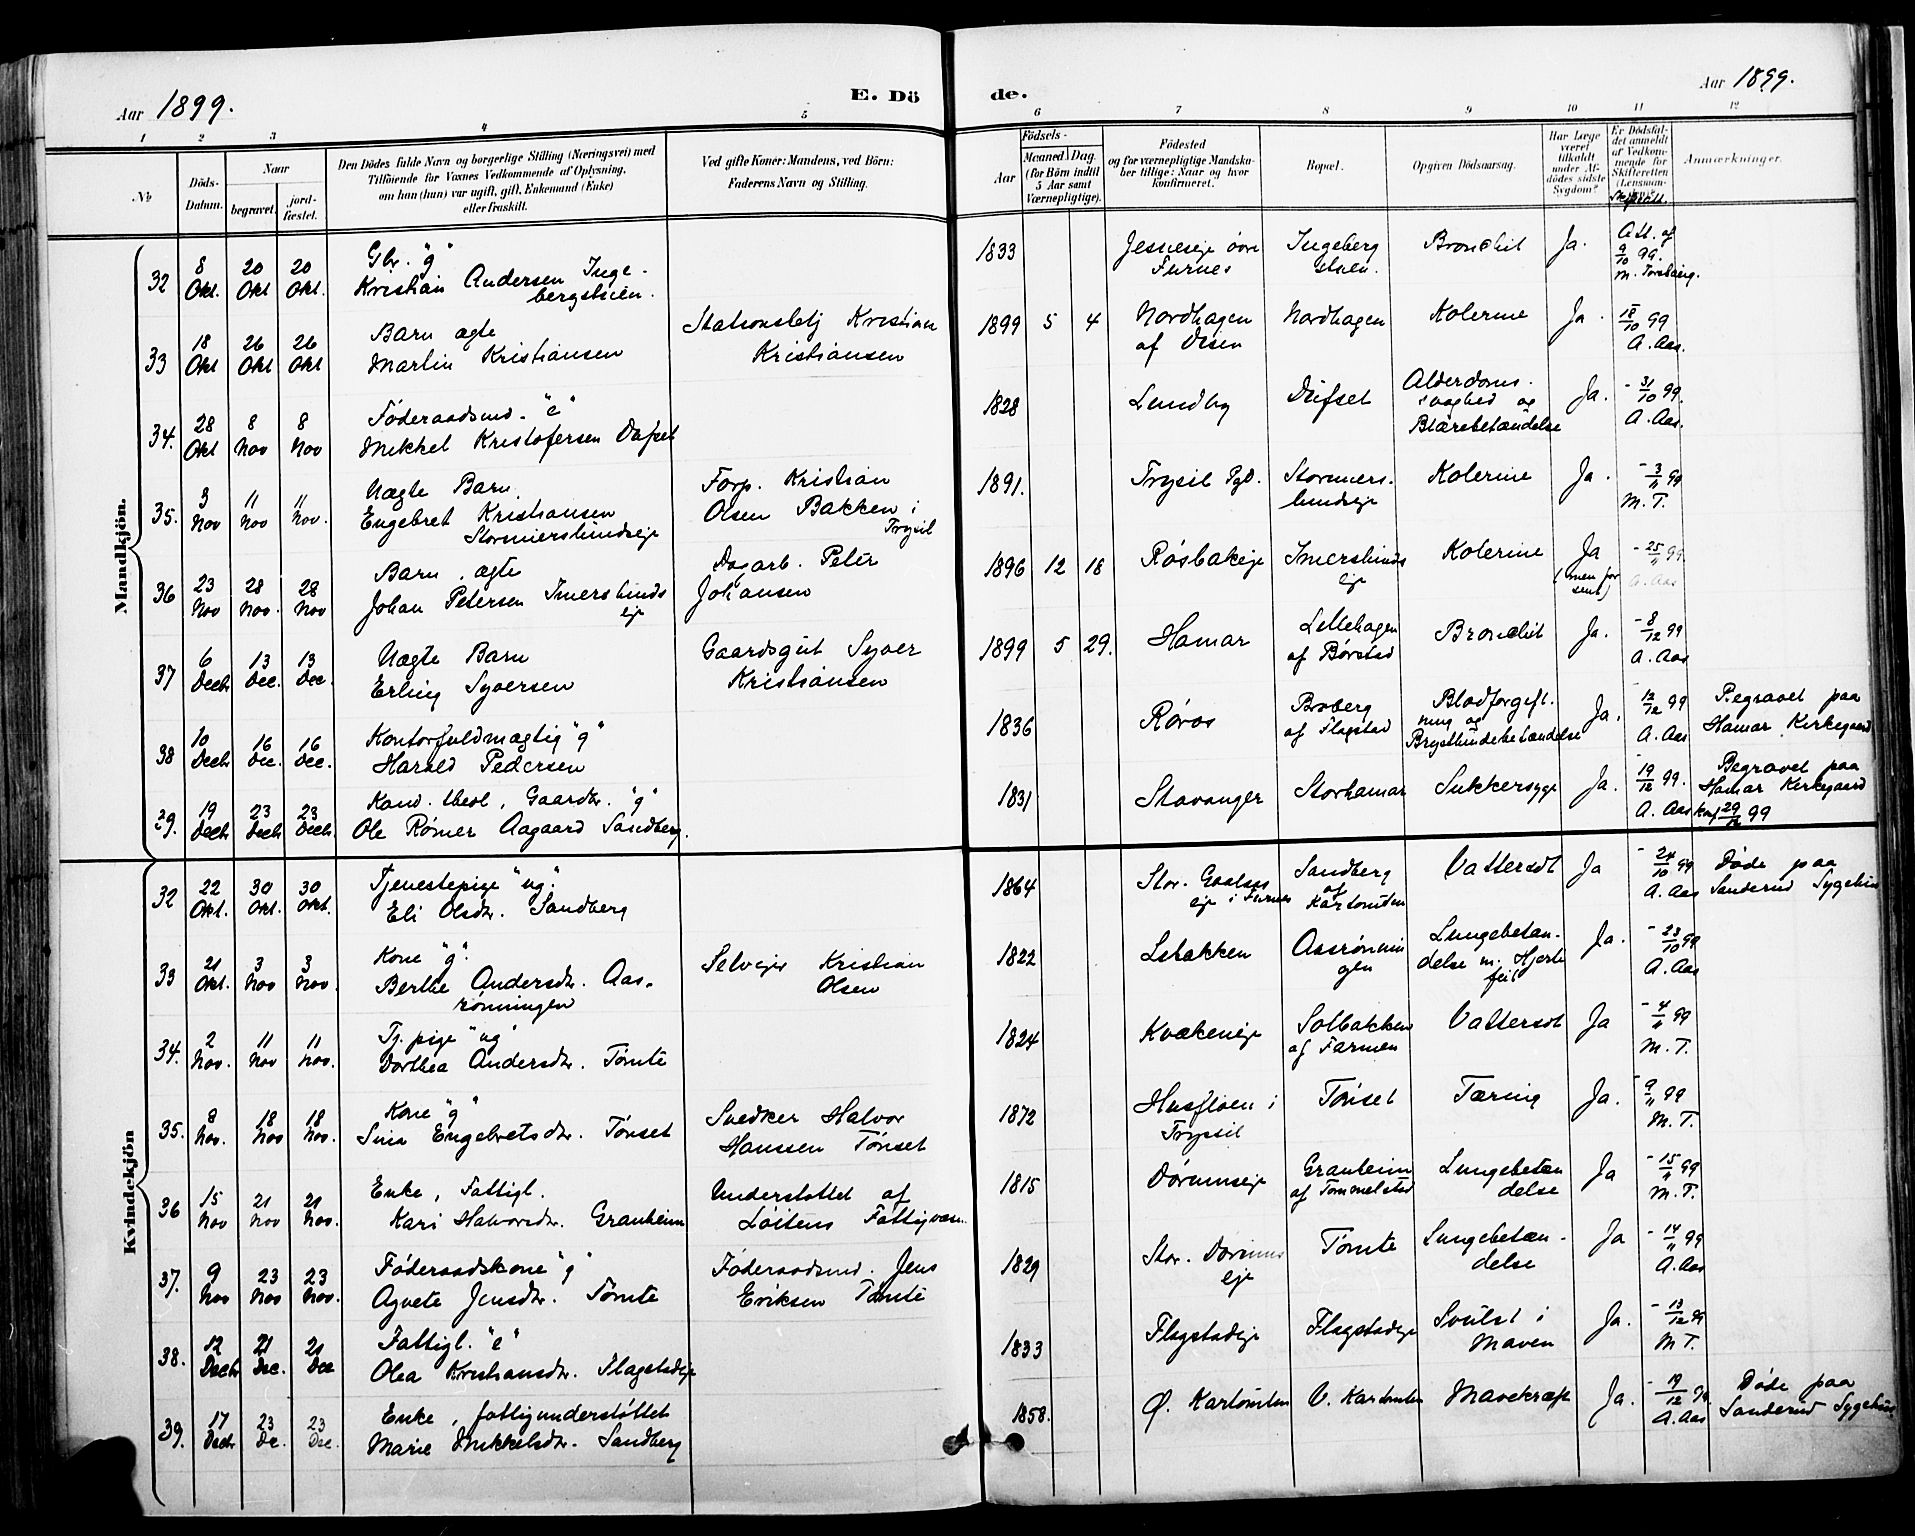 Aar 1899.
E. Dö
de.
Aar 1899.
1 2 3 4 5 6 7 8 9 10 11 12
No
Døds-
Datum.
Naar
begravet.
jord-
fæstet.
Den Dödes fulde Navn og borgerlige Stilling (Næringsvei) med
Tilföiende for Voxnes Vedkommende af Oplysning,
om han (hun) var ugift, gift, Enkemand (Enke)
eller fraskilt.
Ved gifte Koner: Mandens, ved Börn:
Faderens Navn og Stilling.
Födsels-
Aar
Maaned Dag
(for Börn indtil
5 Aar samt
Værnepligtige).
Födested
og for værnepligtige Mandska-
ber tillige: Naar og hvor
konfirmeret.
Bopæl.
Opgiven Dödsaarsag.
Har Læge
været
tilkaldt
under Af-
dödes sidste
Sygdom?
Er Dödsfal-
det anmeldt
af Vedkom-
mende for
Skifteretten
Anmærkninger.
Mandkjön.
32 8 Okt. 20 Okt 20 Okt. Gbr. "g" Kristian Andersen Inge-
bergstuen. 1833 Furnes Ingeberg
stuen. Bronchit Ja. Att. af 9/10 99. M. Torsberg.
33 18 Okt 26 Okt 26 Okt Barn ægte Martin Kristiansen Stationsbetj Kristian
Kristiansen 1899 5 4 Nordhagen
af Disen Nordhagen Kolerine Ja. 18/10 99 A. Aas.
34. 28 Okt 8 Nov 8 Nov Föderaadsmd. "e" Mikkel Kristofersen Dufset 1828 Lundby Dufset Alderdoms-
svaghed og
Blærebetændelse Ja. 31/10 99. A. Aas.
35. 3 Nov 11 Nov 11 Nov. Uægte Barn. Engebret Kristiansen
Stormerslundseje Forp. Kristian
Olsen Bakken i
Trysil 1891. Trysil Pgd. Stormers-
lundseje Kolerine Ja. 3/11 99 M. T.
36 23 Nov 28 Nov. 28 Nov Barn, ægte Johan Petersen Imerslunds
eje Dagarb. Peter
Johansen 1896 12 18 Røsbakeje Imerslunds
eje Kolerine Ja
(men for
sent) 25/11 99. A. Aas
37 6 Decb 13 Dec. 13 Dec. Uægte Barn Erling Syversen Gaardsgut Syver
Kristiansen 1899 5 29. Hamar Lillehagen
af Børstad Bronchit Ja. 8/12 99 A. Aas
38 10 Decb 16 Dec. 16 Dec. Kontorfuldmægtig "g" Harald Pedersen 1836 Røros Broberg
af Flagstad Blodforgift-
ning og
Brystbindebetændelse Ja. 12/12 99 A. Aas Begravet paa
Hamar Kirkegaard
29. 19 Decb 23 Decb 23 Decb Kand. theol, Gaardbr. "g" Ole Rømer Aagaard Sandberg. 1831 Stavanger Storhamar Sukkersyge Ja. 19/12 99. A. Aas Begravet paa
Hamar Kirkegaard
29/12 99
Kvindekjön
32 22 Okt. 30 Okt. 30 Okt. Tjenestepige "ug." Eli Olsdtr. Sandberg 1864 eje i Furnes Sandberg
af
Kartomten Vattersot Ja 24/10 99 A. Aas Døde paa
Sanderud Sygehus
33 21 Okt. 3 Nov 3 Nov. Kone "g". Berthe Andersdtr. Aas-
rönningen Selvejer Kristian
Olsen 1822 Lsbakken Aasrönnin
gen Lungebetæn-
delse m. Hjerte
feil Ja. 23/10 99 A. Aas
34. 2 Nov. 11 Nov 11 Nov. Tj. pige "ug" Dorthea Andersdtr. Tömte 1824 Kvækeneje Solbakken
af Farmen Vattersot Ja 4/11 99 M. T.
35. 8 Nov. 18 Nov 18 Nov. Kone "g" Sina Engebretsdtr. Tönset Snedker Halvor
Hanssen Tönset 1872 Husfloen i
Trysil Tönset Tæring Ja. 9/11 99 M. T.
36 15 Nov 21 Nov 21 Nov. Enke, Fattigl. Kari Halvorsdtr. Granheim Understöttet af
Löitens Fattigvæsen 1815 Dörumseje Granheim
af Tommelstad Lungebetæn
delse Ja 15/11 99 M. T.
37. 9 Nov 23 Nov 23 Nov. Föderaadskone "g" Agnete Jensdtr. Tömte Föderaadsmd. Jens
Eriksen Tömte 1829 Stor. Dörums
eje Tömte Lungebetæn-
delse Ja 14/11 99 A. Aas
38. 12 Decb 21 Dec. 21 Dec Fattigl. "e" Olea Kristiansdtr. Flagstadeje 1833 Flagstadeje Flagstadeje Svulst i
Maven Ja. 13/12 99 M. T.
39. 17 Decb 23 De. 23 Dec. Enke, fattigunderstöttet Marie Mikkelsdtr. Sandberg 1858. Ø. Kartomten V. Kartomten Mavekræft Ja. 19/12 99. A. Aas Døde paa
Sanderud Sygehus